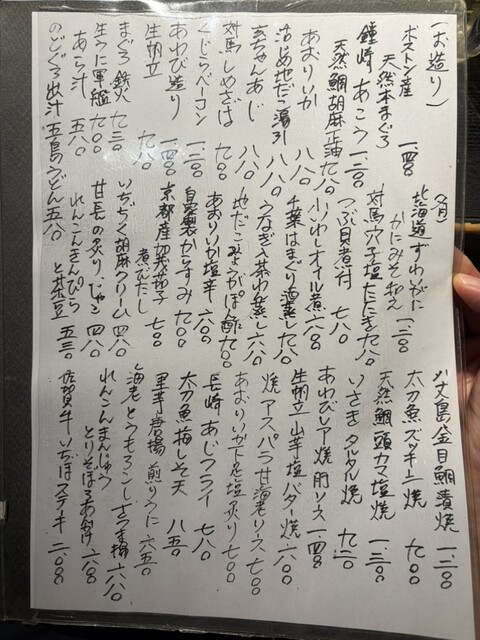 (お造り)
ボストン産
天然本まぐろ 一、四〇〇
鐘崎 あこう 一、二〇〇
天然鯛胡麻正油 九八〇
あおりいか 八八〇
活〆地だこ湯引 八八〇
玄ちゃんあじ 八八〇
対馬しめさば 九八〇
くじらベーコン 一、二〇〇
あわび造り 一、四〇〇
生帆立 九八〇
まぐろ鉄火 七三〇
生うに軍艦 九〇〇
あら汁 五八〇
のどぐろ出汁 五島のうどん 五八〇
北海道ずわいがに
かにみそ和え 一、二〇〇
対馬穴子塩たたき 九八〇
つぶ貝煮付 七八〇
小いわしオイル煮 六八〇
千葉はまぐり酒蒸し 九八〇
うなぎ入茶わん蒸し 六八〇
地だこみょうがぽん酢 九〇〇
あおりいか塩辛 六〇〇
自家製からすみ 九〇〇
京都産加茂茄子
煮びたし 七〇〇
いちぢく胡麻クリーム 四八〇
甘長の炙り、じゃこ 四八〇
れんこんきんぴら
と茶豆 五三〇
八丈島金目鯛漬焼 一、三〇〇
太刀魚ズッキーニ焼 九〇〇
天然鯛頭カマ塩焼 一、三〇〇
いさきタルタル焼 九二〇
あわびレア焼肝ソース 一、四〇〇
生帆立山芋塩バター焼 六八〇
焼アスパラ甘海老ソース 七〇〇
あおりいか下足塩炙り 七〇〇
長崎あじフライ 七八〇
太刀魚梅しそ天 八五〇
里芋唐揚 煎りうに 六五〇
海老とうもろこしさつま揚 六八〇
れんこんまんじゅう
とりそぼろあんかけ 六八〇
佐賀牛いちぼステーキ 二、〇〇〇